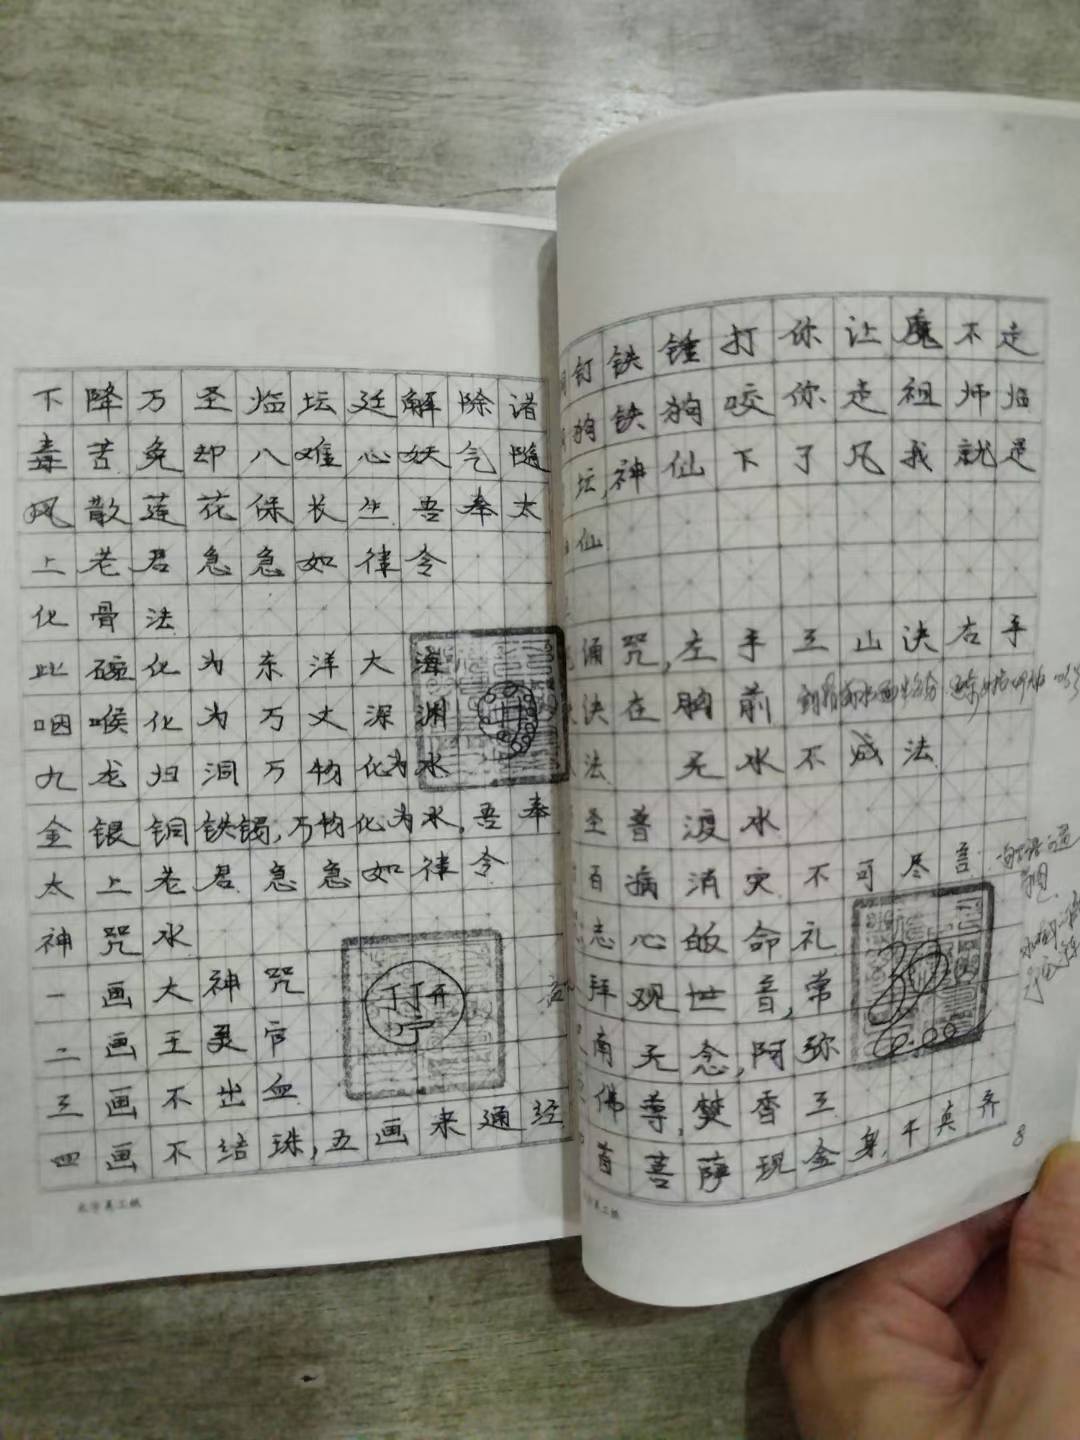 下降万圣临坛廷解除诸
毒苦免却八难心妖气随
风散莲花保长生吾奉太
上老君急急如律令
化骨法
此碗化为东洋大海
咽喉化为万丈深渊
九龙归洞万物化为水
金银铜铁锡,万物化为水,吾奉
太上老君急急如律令
神咒水
一画大神咒
二画王灵官
三画不出血
四画不结珠,五画来通经
钉铁锤打你让魔不走
狗铁狗咬你走祖师临
坛,神仙下了凡我就是
仙
诵咒,左手三山决右手
决在胸前
法 无水不成法
圣普渡水
百病消灾不可尽言
志心皈命礼
拜观世音,常
南无念,阿弥
佛尊,焚香三
首菩萨现金身,千真齐
8